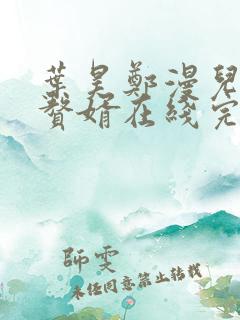 葉昊鄭漫兒
贅婿在綫完
師雯
未经同意禁止转载